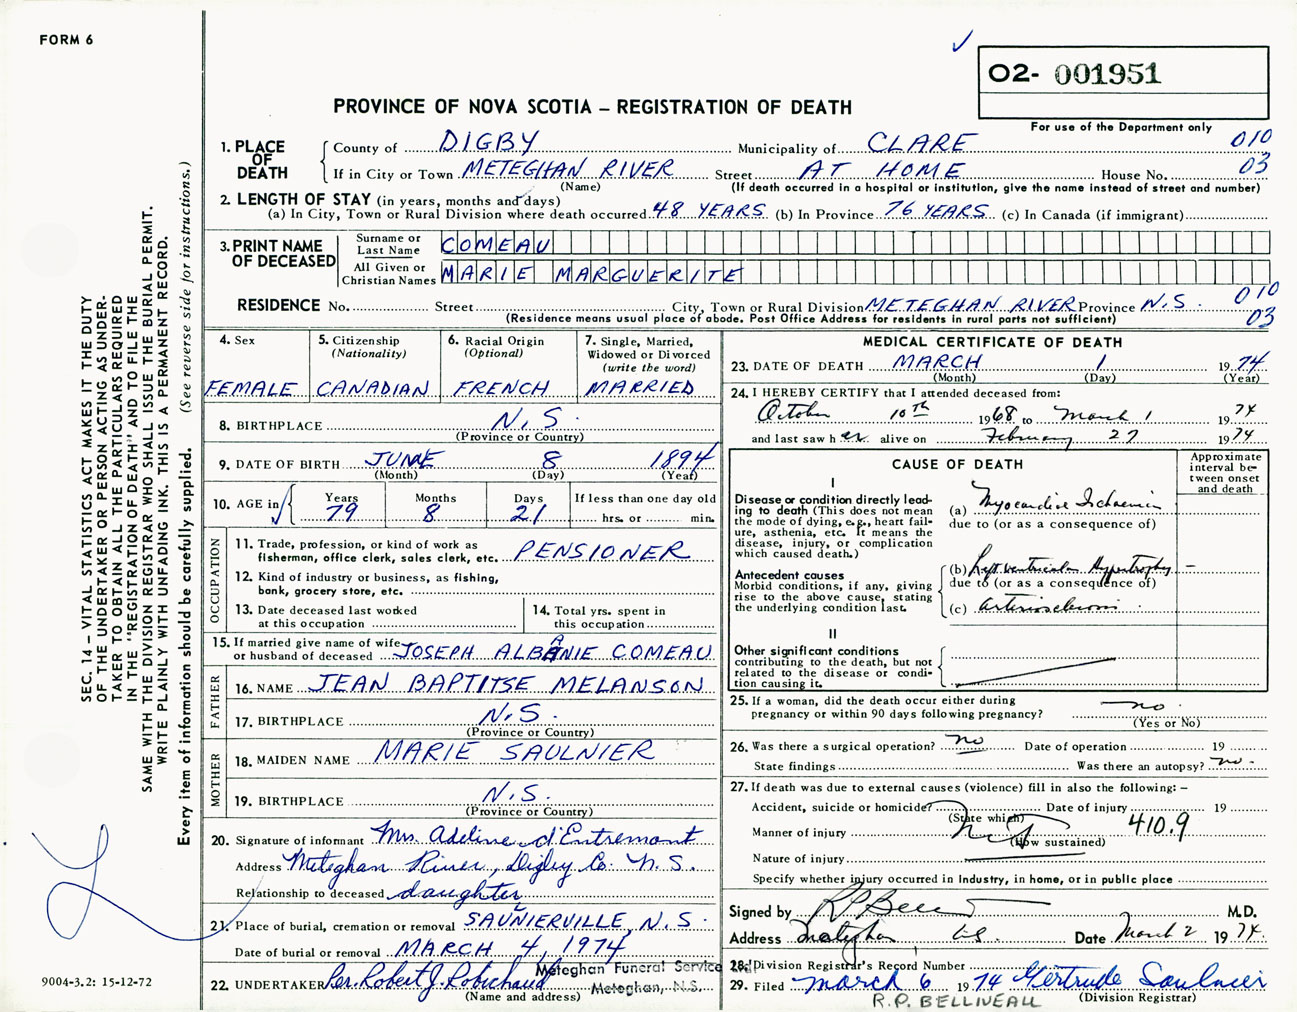 FORM 6
O2- 001951
PROVINCE OF NOVA SCOTIA – REGISTRATION OF DEATH
For use of the Department only
1. PLACE OF DEATH
County of DIGBY Municipality of CLARE 010
If in City or Town METEGHAN RIVER Street AT HOME House No. 03
(Name) (If death occurred in a hospital or institution, give the name instead of street and number)
2. LENGTH OF STAY (in years, months and days)
(a) In City, Town or Rural Division where death occurred 48 YEARS (b) In Province 76 YEARS (c) In Canada (if immigrant)
3. PRINT NAME OF DECEASED
Surname or Last Name COMEAU
All Given or Christian Names MARIE MARGUERITE
RESIDENCE No. Street City, Town or Rural Division METEGHAN RIVER Province N.S. 010
(Residence means usual place of abode. Post Office Address for residents in rural parts not sufficient) 03
4. Sex
FEMALE
5. Citizenship
(Nationality)
CANADIAN
6. Racial Origin
(Optional)
FRENCH
7. Single, Married,
Widowed or Divorced
(write the word)
MARRIED
8. BIRTHPLACE N.S.
(Province or Country)
9. DATE OF BIRTH JUNE 8 1894
(Month) (Day) (Year)
10. AGE in
Years Months Days If less than one day old
79 8 21 hrs. or min.
OCCUPATION
11. Trade, profession, or kind of work as
fisherman, office clerk, sales clerk, etc. PENSIONER
12. Kind of industry or business, as fishing,
bank, grocery store, etc.
13. Date deceased last worked
at this occupation
14. Total yrs. spent in
this occupation
15. If married give name of wife
or husband of deceased JOSEPH ALBANIE COMEAU
FATHER
16. NAME JEAN BAPTITSE MELANSON
17. BIRTHPLACE N.S.
(Province or Country)
MOTHER
18. MAIDEN NAME MARIE SAULNIER
19. BIRTHPLACE N.S.
(Province or Country)
20. Signature of informant Mrs. Adeline d'Entremont
Address Meteghan River, Digby Co. N.S.
Relationship to deceased daughter
21. Place of burial, cremation or removal SAUNIERVILLE, N.S.
Date of burial or removal MARCH 4, 1974
22. UNDERTAKER Per. Robert J. Robichaud Meteghan Funeral Service
(Name and address) Meteghan, N.S.
MEDICAL CERTIFICATE OF DEATH
23. DATE OF DEATH MARCH 1 1974
(Month) (Day) (Year)
24. I HEREBY CERTIFY that I attended deceased from:
October 10th 1968 to March 1 1974
and last saw her alive on February 27 1974
CAUSE OF DEATH
Approximate
interval be-
tween onset
and death
I
Disease or condition directly lead-
ing to death (This does not mean
the mode of dying, e.g., heart fail-
ure, asthenia, etc. It means the
disease, injury, or complication
which caused death.)
(a) Myocardive Ischaemia
due to (or as a consequence of)
Antecedent causes
Morbid conditions, if any, giving
rise to the above cause, stating
the underlying condition last.
(b) Left ventricular Hypertrophy –
due to (or as a consequence of)
(c) arteriosclerosis
II
Other significant conditions
contributing to the death, but not
related to the disease or condi-
tion causing it.
25. If a woman, did the death occur either during
pregnancy or within 90 days following pregnancy? no.
(Yes or No)
26. Was there a surgical operation? no Date of operation 19
State findings Was there an autopsy? no.
27. If death was due to external causes (violence) fill in also the following: –
Accident, suicide or homicide? Date of injury 19
(State which)
Manner of injury 410.9
(How sustained)
Nature of injury
Specify whether injury occurred in Industry, in home, or in public place
Signed by R.P. Bell M.D.
Address Meteghan N.S. Date March 2 1974.
28. Division Registrar's Record Number
29. Filed March 6 1974 Gertrude Saulnier
R.P. BELLIVEAU (Division Registrar)
SEC. 14 – VITAL STATISTICS ACT MAKES IT THE DUTY
OF THE UNDERTAKER OR PERSON ACTING AS UNDER-
TAKER TO OBTAIN ALL THE PARTICULARS REQUIRED
IN THE "REGISTRATION OF DEATH" AND TO FILE THE
SAME WITH THE DIVISION REGISTRAR WHO SHALL ISSUE THE BURIAL PERMIT.
WRITE PLAINLY WITH UNFADING INK. THIS IS A PERMANENT RECORD.
Every item of information should be carefully supplied. (See reverse side for instructions.)
9004-3.2: 15-12-72